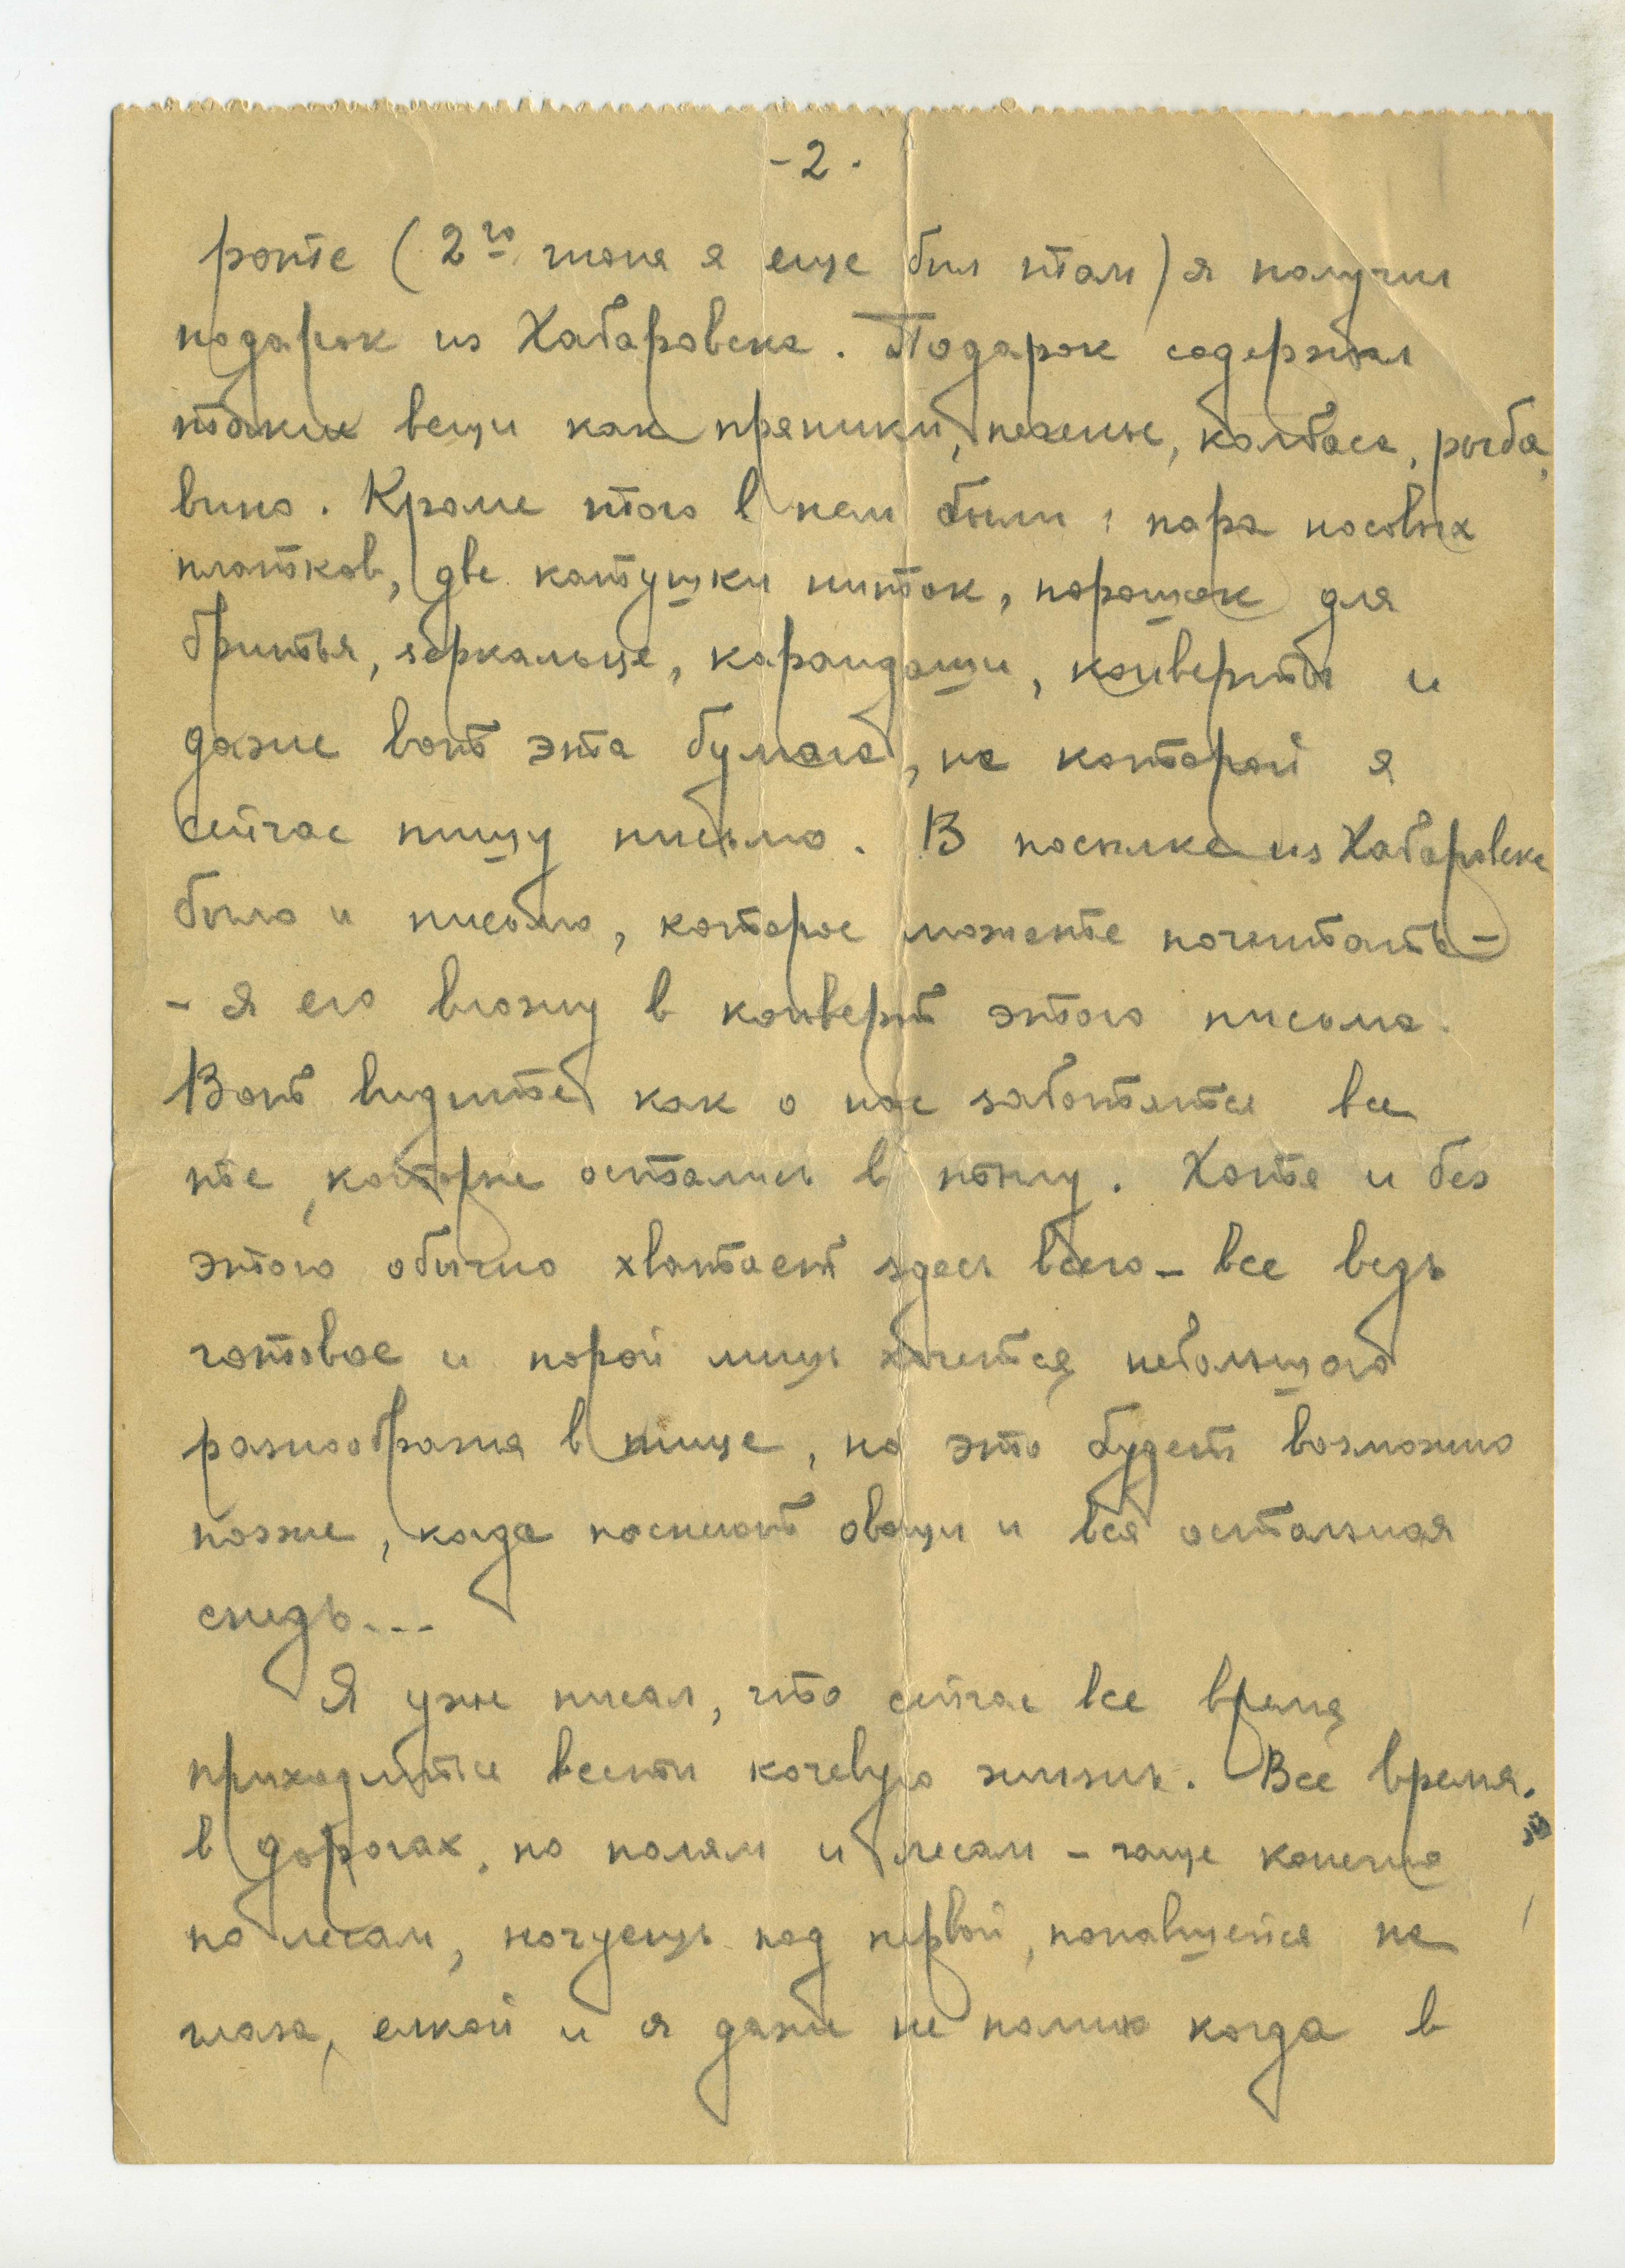 - 2 -
роте (2го июня я еще был там) я получил
подарок из Хабаровска. Подарок содержал
такие вещи как пряники, печенье, колбаса, рыба,
вино. Кроме того в нем были: пара носовых
платков, две катушки ниток, порошок для
бритья, зеркальце, карандаши, конверты и
даже вот эта бумага, на которой я
сейчас пишу письмо. В посылке из Хабаровска
было и письмо, которое можете почитать -
- я его вложу в конверт этого письма.
Вот видите как о нас заботятся все
те, которые остались в тылу. Хотя и без
этого обычно хватает здесь всего - все ведь
готовое и порой лишь хочется небольшого
разнообразия в пище, но это будет возможно
позже, когда поспеют овощи и вся остальная
снедь...
Я уже писал, что сейчас все время
приходится вести кочевую жизнь. Все время
в дорогах, по полям и лесам - чаще конечно
по лесам, ночуешь под первой, попавшейся на
глаза, елкой и я даже не помню когда в